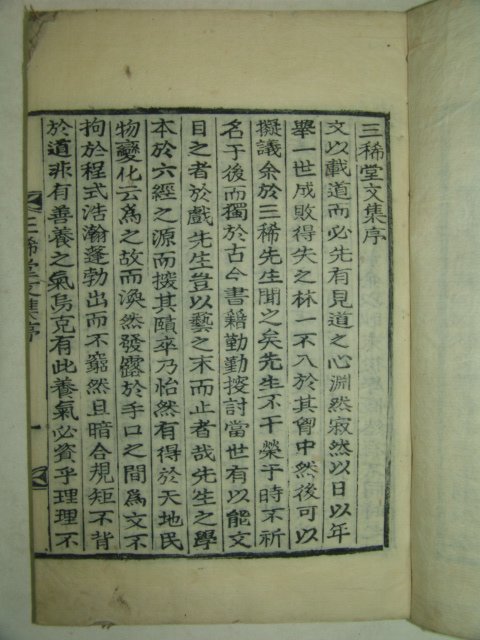 三稀堂文集序
文以載道而必先有見道之心淵然寂然以日以年
擧一世成敗得失之林一不入於其胷中然後可以
擬議余於三稀先生聞之矣先生不干榮于時不祈
名于後而獨於古今書籍勤勤搜討當世有以能文
目之者於戲先生豈以藝之末而止者哉先生之學
本於六經之源而搜其賾卒乃怡然有得於天地民
物變化云爲之故而渙然發露於手口之間爲文不
拘於程式浩瀚蓬勃出而不窮然且暗合規矩不背
於道非有善養之气烏克有此養氣必資乎理理不
三稀堂文集序
一